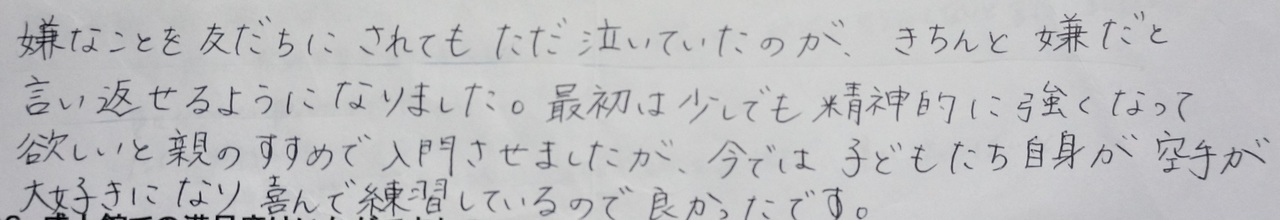 嫌なことを友だちにされてもただ泣いていたのが、きちんと嫌だと
言い返せるようになりました。最初は少しでも精神的に強くなって
欲しいと親のすすめで入門させましたが、今では子どもたち自身が空手が
大好きになり喜んで練習しているので良かったです。